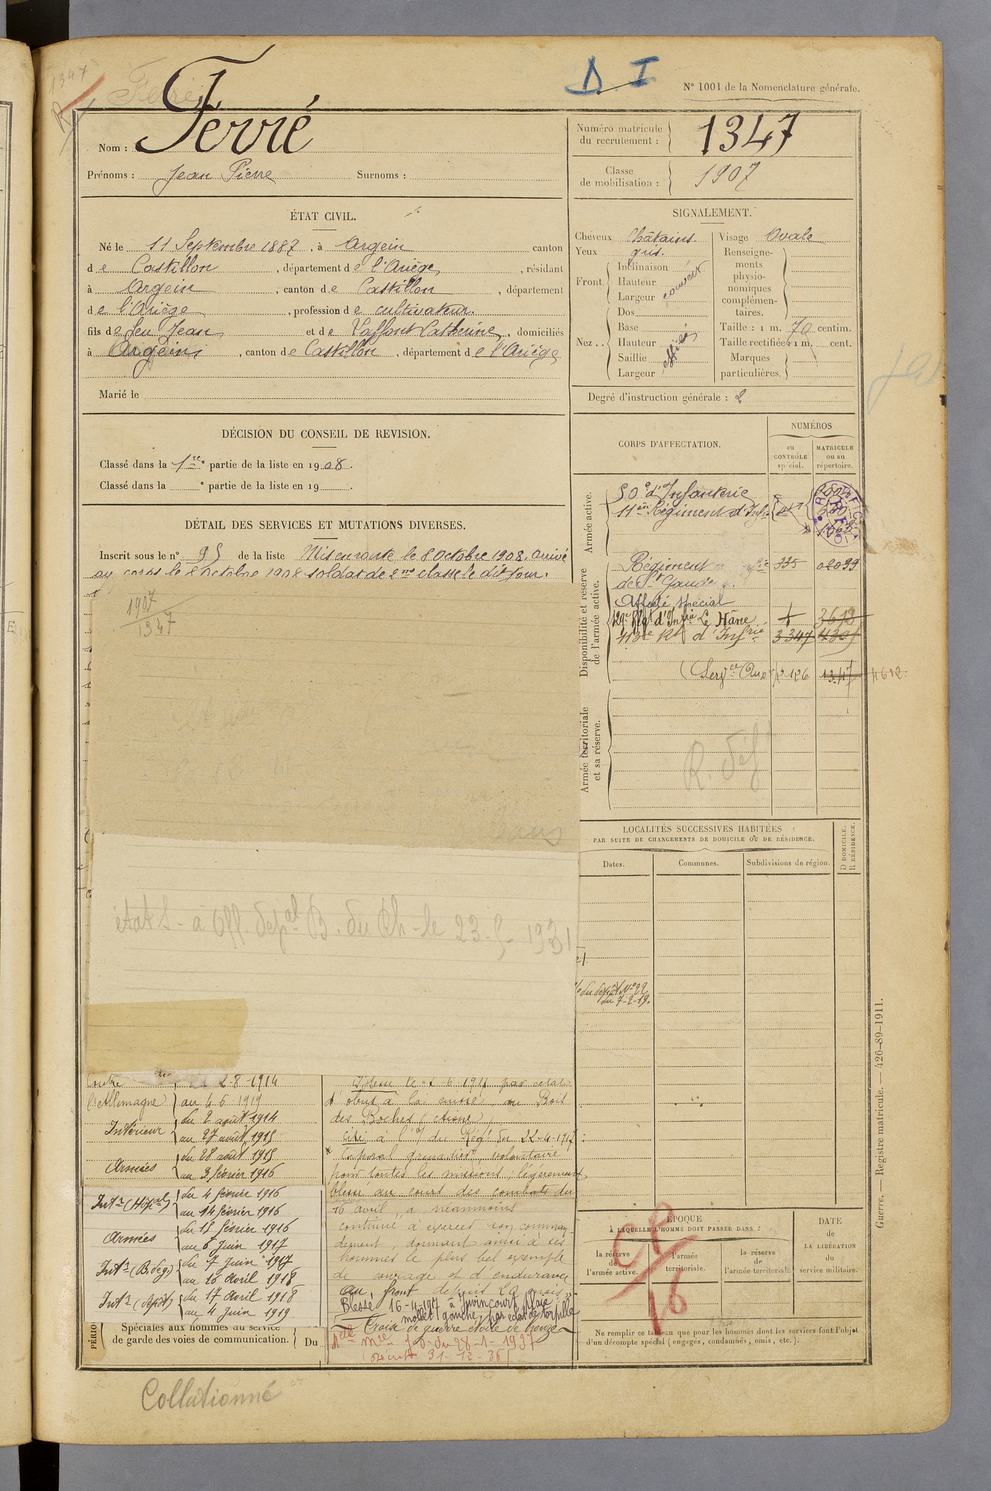 1347
Ferré
D. I
N° 1001 de la Nomenclature générale.
Nom : Ferré
Prénoms : Jean Pierre Surnoms :
Numéro matricule du recrutement : 1347
Classe de mobilisation : 1907
ÉTAT CIVIL.
Né le 11 Septembre 1887, à Argein canton
de Castillon, département de l'Ariège, résidant
à Argein, canton de Castillon, département
de l'Ariège, profession de cultivateur
fils de feu Jean et de Laffont Catherine, domiciliés
à Argein, canton de Castillon, département de l'Ariège
Marié le
SIGNALEMENT.
Cheveux châtains.
Yeux gris.
Front. Inclinaison
Hauteur
Largeur couvert
Nez.. Dos
Base
Hauteur
Saillie
Largeur
Visage Ovale
Renseignements physionomiques complémentaires.
Taille : 1 m. 70 centim.
Taille rectifiée : 1 m. cent.
Marques particulières.
Degré d'instruction générale : 2
DÉCISION DU CONSEIL DE REVISION.
Classé dans la 1re partie de la liste en 1908.
Classé dans la e partie de la liste en 19
DÉTAIL DES SERVICES ET MUTATIONS DIVERSES.
Inscrit sous le n° 95 de la liste Mis en route le 8 Octobre 1908. arrivé
au corps le 8 octobre 1908 soldat de 2me classe le dit jour.
1907
1347
CORPS D'AFFECTATION.
NUMÉROS
au CONTRÔLE spécial.
MATRICULE ou au répertoire.
Armée active.
50e d'Infanterie
11en Régiment d'Infie
Disponibilité et réserve de l'armée active.
Régiment 335
de St Gaudens
Affecté spécial
129e Régt d'Infie Le Hâvre
113e Rt d'Infie 3347
1347 4612
Armée territoriale et sa réserve.
R. déf
LOCALITÉS SUCCESSIVES HABITÉES
PAR SUITE DE CHANGEMENTS DE DOMICILE OU DE RÉSIDENCE.
Dates. Communes. Subdivisions de région.
D DOMICILE. R RÉSIDENCE.
du 7-2-19.
états - à Off. depal B. du Ch - le 23-5-1931
contre 2-8-1914
l'Allemagne au 4-6-1919
Intérieur du 2 août 1914
au 27 août 1915
Armées du 28 août 1915
au 3 février 1916
Intr (Hôpal) du 4 février 1916
au 14 février 1916
Armées du 15 février 1916
au 6 juin 1917
Intr (Bség) du 7 juin 1917
au 16 avril 1918
Intr (Dépôt) du 17 avril 1918
au 4 juin 1919
par éclat
d'obus à la cuisse au Bois
des Boches (Aisne)
Cité à l'O/ du Régt du 22-4-1917
Caporal grenadier, volontaire
pour toutes les missions, légèrement
blessé au cours des combats du
16 avril, a néanmoins
continué à exercer son comman
dement, donnant ainsi à ses
hommes le plus bel exemple
de courage et d'endurance
Au front depuis 
Blessé 16-4-1917 à Juvincourt plaie
mollet gauche par éclat de torpille
Croix de guerre étoile de bronze
du 28-1-1937
31-12-36
PÉRIO
Spéciales aux hommes du service
de garde des voies de communication. Du
ÉPOQUE
À LAQUELLE L'HOMME DOIT PASSER DANS :
la réserve de l'armée active.
l'armée territoriale.
la réserve de l'armée territoriale.
DATE de LA LIBÉRATION du service militaire.
16
Ne remplir ce tableau que pour les hommes dont les services font l'objet
d'un décompte spécial (engagés, condamnés, omis, etc.).
Guerre. — Registre matricule. — 426-89-1911.
Collationné